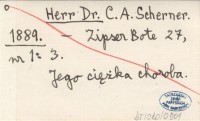 Herr Dr. C. A. Scherner.
1889. — Zipser Bote 27,
nr 1: 3.
Jego ciężka choroba.